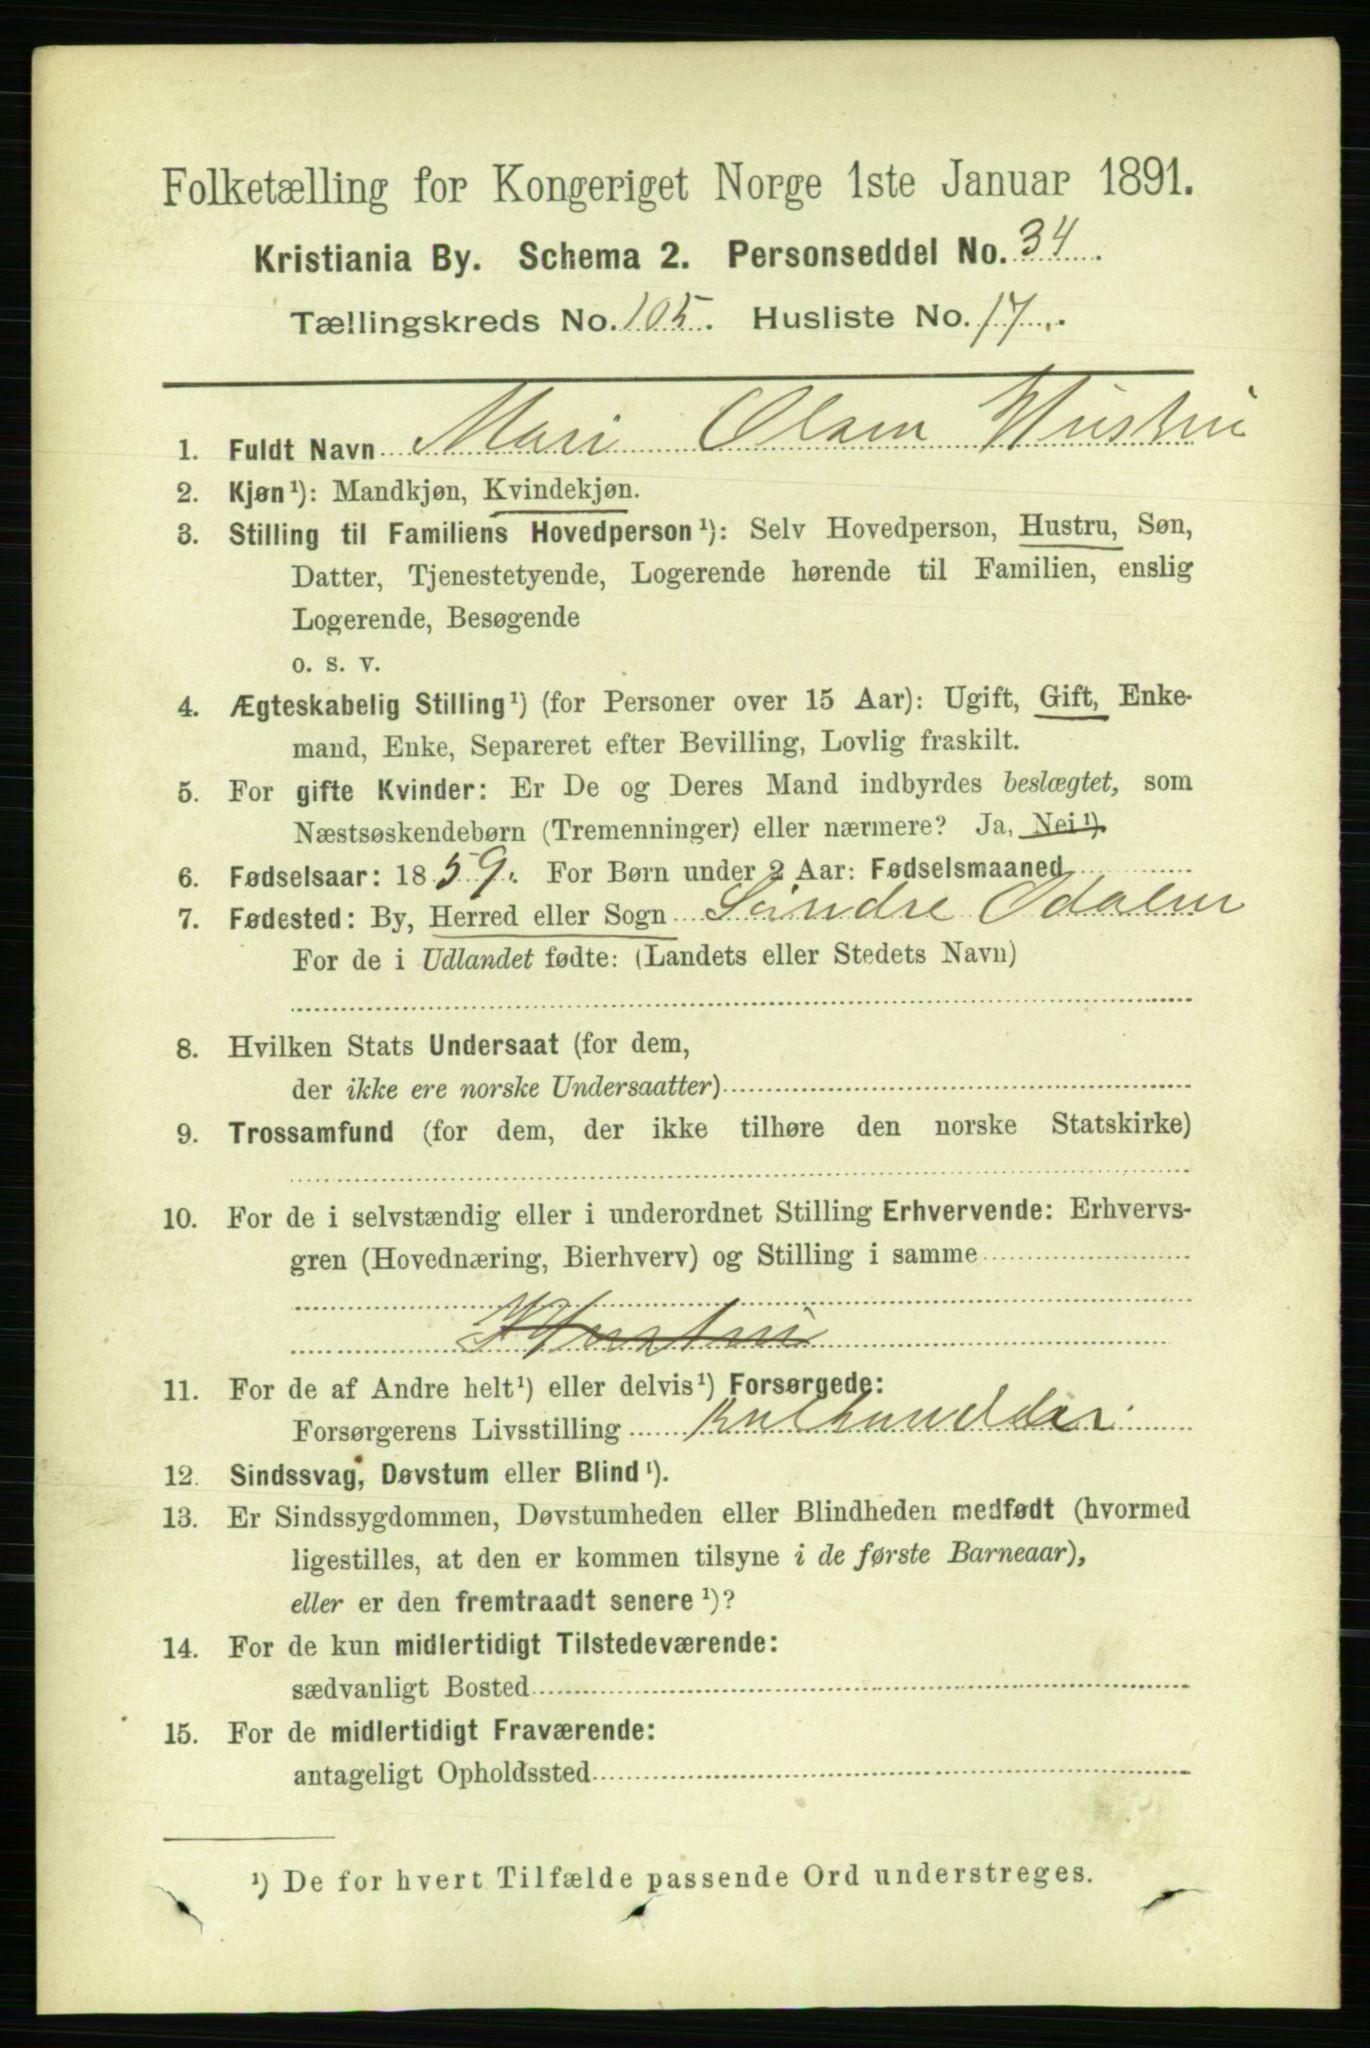 Folketælling for Kongeriget Norge 1ste Januar 1891.
Kristiania By. Schema 2. Personseddel No. 34.
Tællingskreds No. 105. Husliste No. 17.
1. Fuldt Navn Mari Olsen Hustru
2. Kjøn¹): Mandkjøn, Kvindekjøn.
3. Stilling til Familiens Hovedperson¹): Selv Hovedperson, Hustru, Søn,
Datter, Tjenestetyende, Logerende hørende til Familien, enslig
Logerende, Besøgende
o. s. v.
4. Ægteskabelig Stilling¹) (for Personer over 15 Aar): Ugift, Gift, Enke-
mand, Enke, Separeret efter Bevilling, Lovlig fraskilt.
5. For gifte Kvinder: Er De og Deres Mand indbyrdes beslægtet, som
Næstsøskendebørn (Tremenninger) eller nærmere? Ja, Nei¹).
6. Fødselsaar: 1859. For Børn under 2 Aar: Fødselsmaaned
7. Fødested: By, Herred eller Sogn Søndre Odalen
For de i Udlandet fødte: (Landets eller Stedets Navn)
8. Hvilken Stats Undersaat (for dem,
der ikke ere norske Undersaatter)
9. Trossamfund (for dem, der ikke tilhøre den norske Statskirke)
10. For de i selvstændig eller i underordnet Stilling Erhvervende: Erhvervs-
gren (Hovednæring, Bierhverv) og Stilling i samme
Hustru
11. For de af Andre helt¹) eller delvis¹) Forsørgede:
Forsørgerens Livsstilling Kulhandler
12. Sindssvag, Døvstum eller Blind¹).
13. Er Sindssygdommen, Døvstumheden eller Blindheden medfødt (hvormed
ligestilles, at den er kommen tilsyne i de første Barneaar),
eller er den fremtraadt senere¹)?
14. For de kun midlertidigt Tilstedeværende:
sædvanligt Bosted
15. For de midlertidigt Fraværende:
antageligt Opholdssted
¹) De for hvert Tilfælde passende Ord understreges.